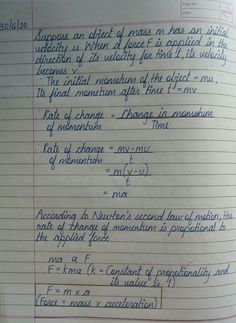 30/6/20
Suppose an object of mass m has an initial
velocity u. When a force F is applied in the
direction of its velocity for time t, its velocity
becomes v.
∴ The initial momentum of the object = mu,
Its final momentum after time t = mv
∴ Rate of change = Change in momentum
of momentum Time
∴ Rate of change = mv-mu
of momentum t
= m(v-u)
t
= ma
According to Newton's second law of motion, the
rate of change of momentum is propotional to
the applied force.
∴ ma α F
∴ F = kma (k = Constant of propotionality and
its value is 1)
F = m x a
(Force = mass x acceleration)